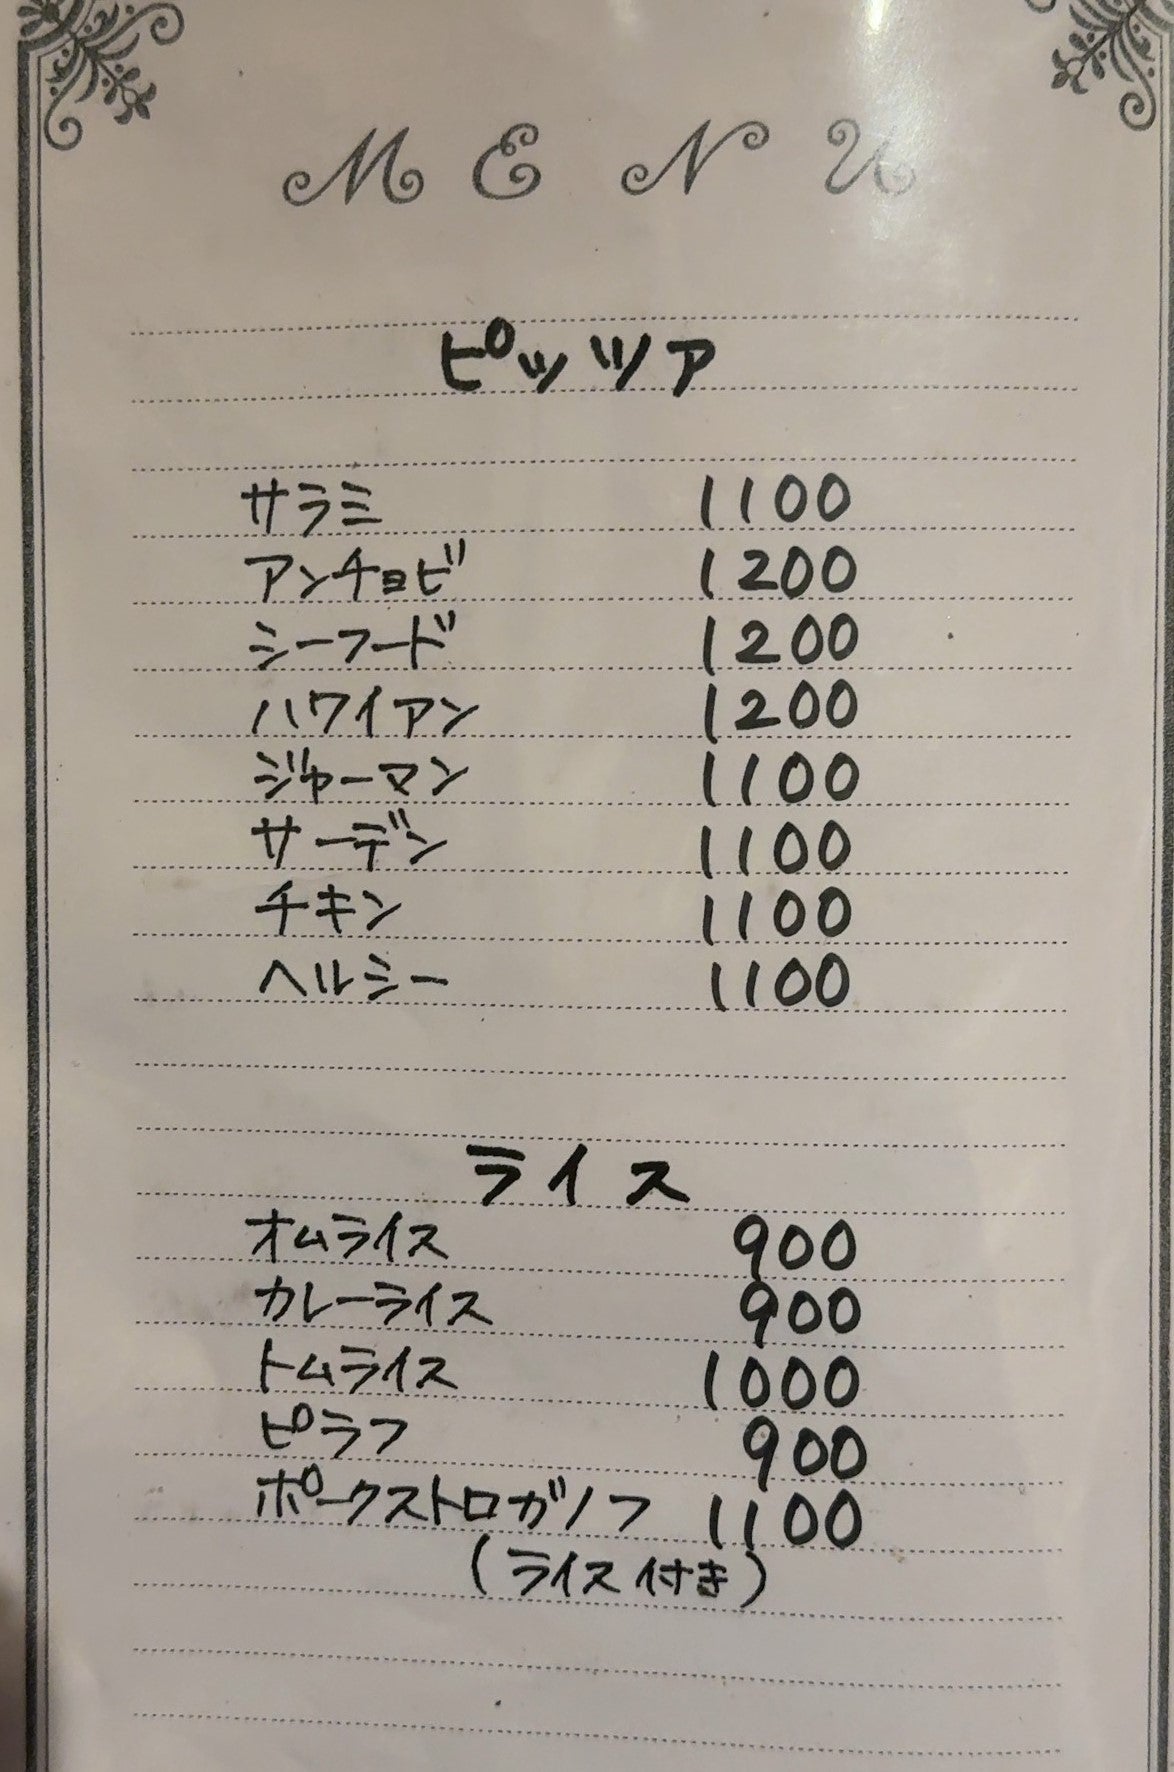 MENU
ピッツァ
サラミ 1100
アンチョビ 1200
シーフード 1200
ハワイアン 1200
ジャーマン 1100
サーデン 1100
チキン 1100
ヘルシー 1100
ライス
オムライス 900
カレーライス 900
トムライス 1000
ピラフ 900
ポークストロガノフ 1100
(ライス付き)